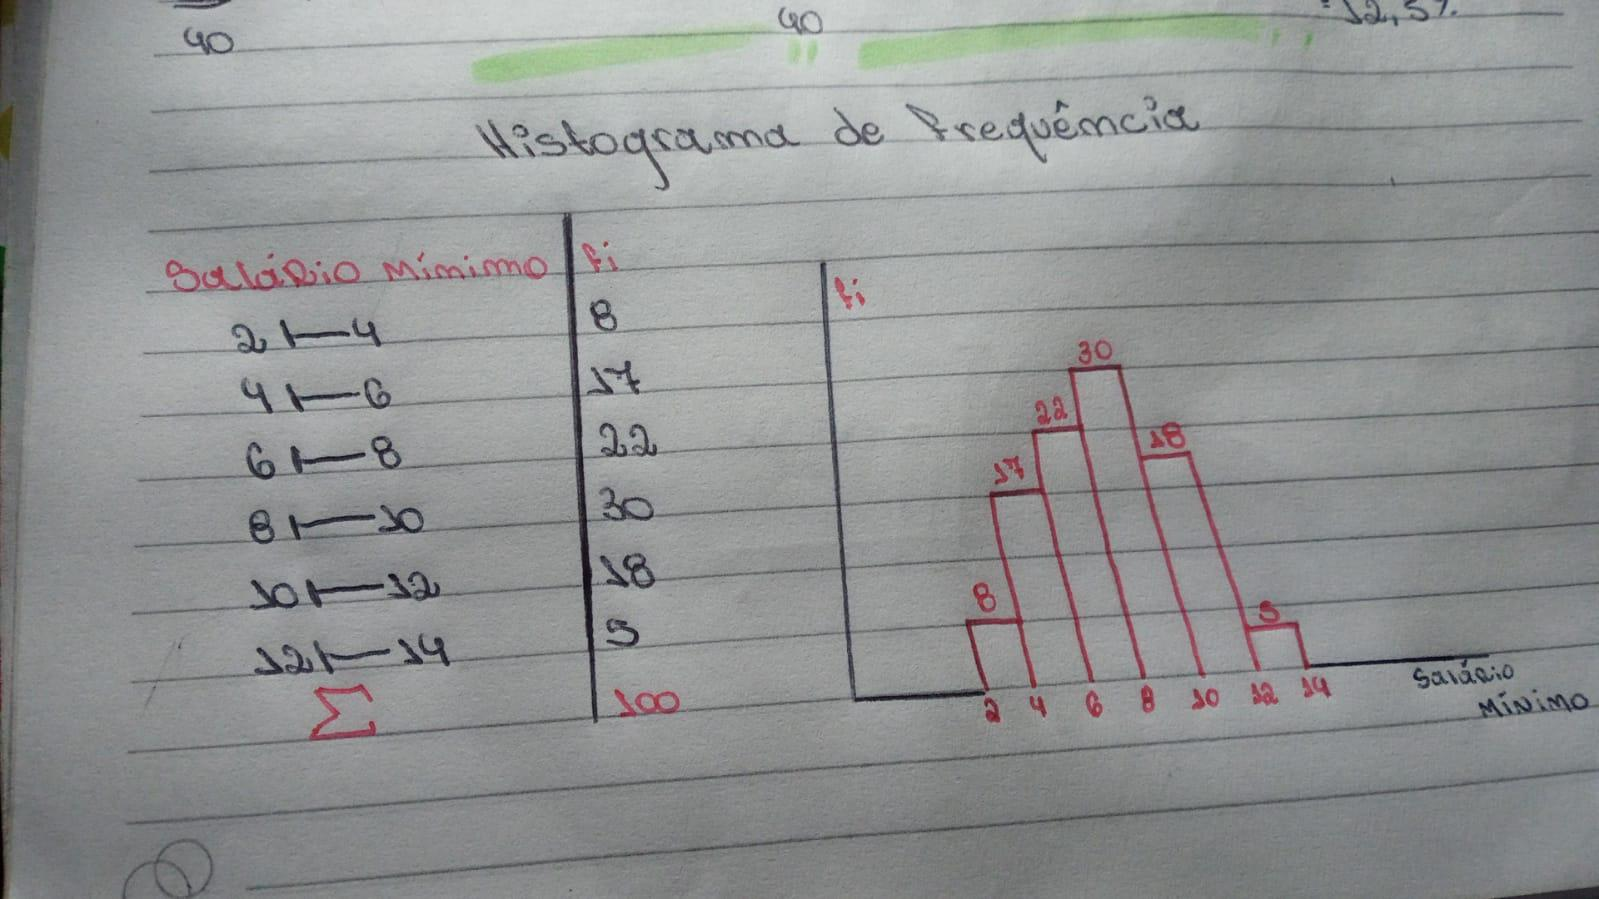 40
40
12,5%
Histograma de Frequência
Salário Mínimo fi
2 ⊢ 4 8
4 ⊢ 6 17
6 ⊢ 8 22
8 ⊢ 10 30
10 ⊢ 12 18
12 ⊢ 14 5
Σ 100
fi
30
22
18
17
8
5
2 4 6 8 10 12 14
Salário
Mínimo